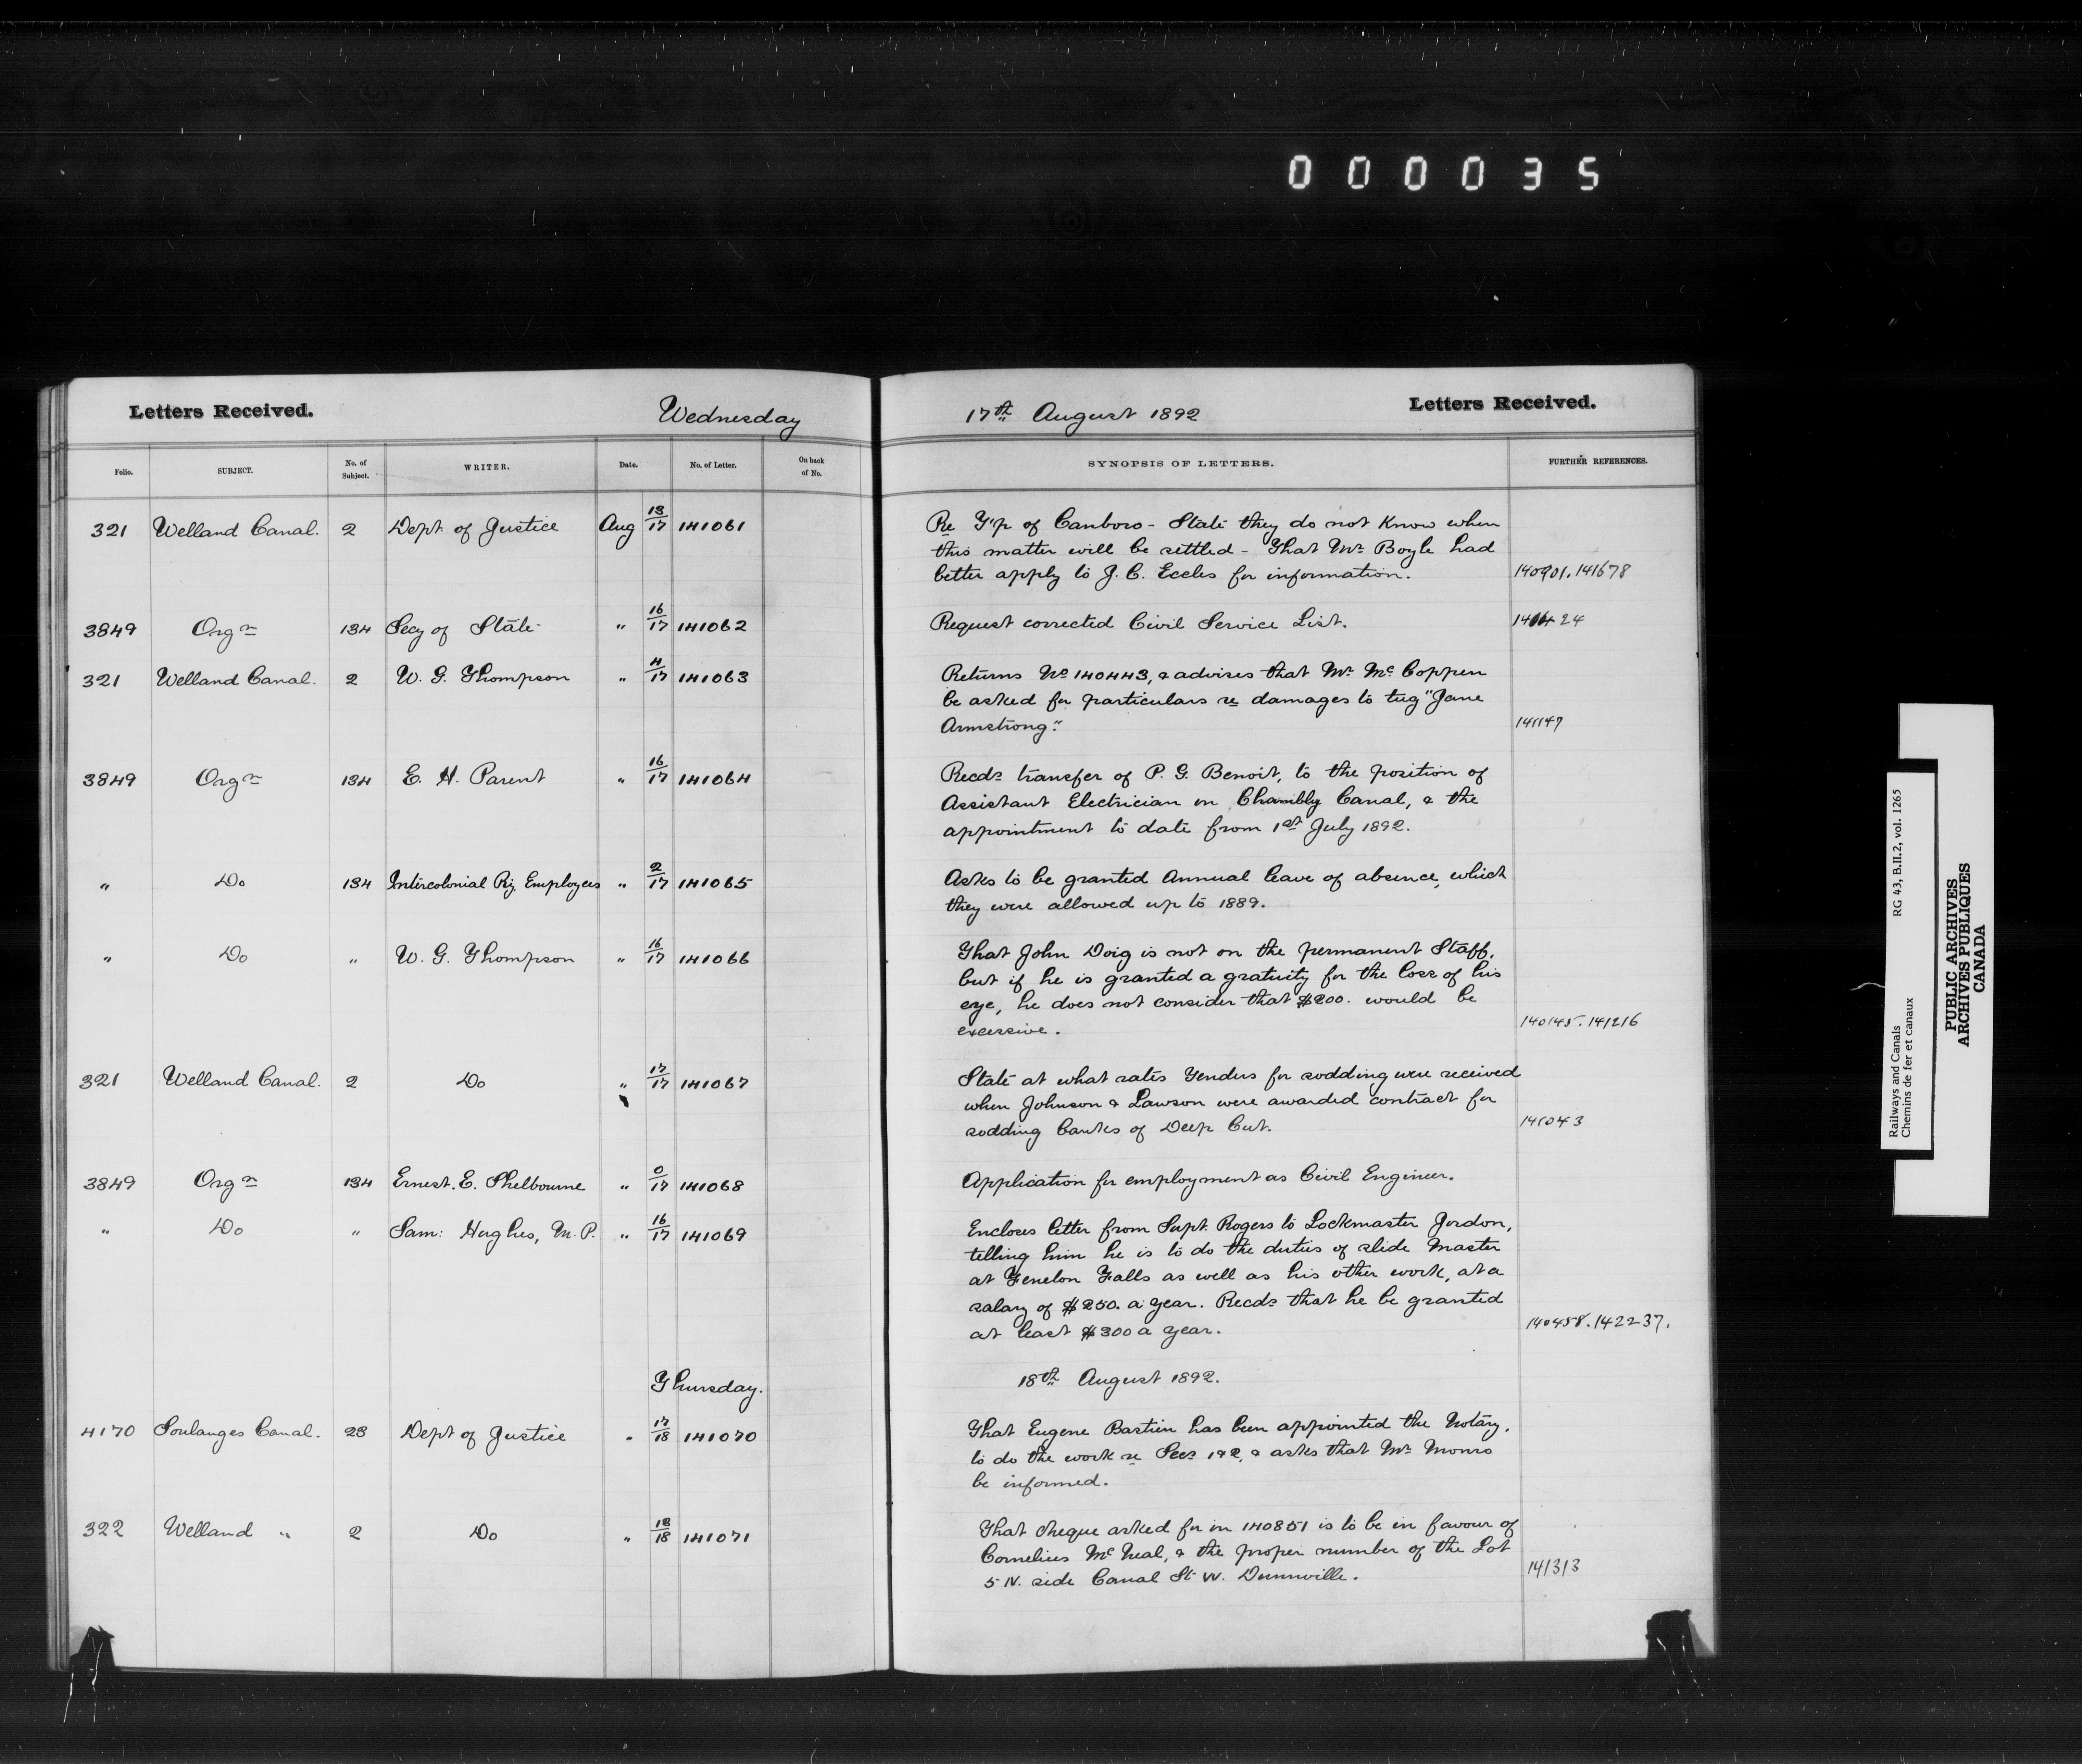 0 0 0 0 3 5
Letters Received. Wednesday 17th August 1892 Letters Received.
Folio. SUBJECT. No. of Subject. WRITER. Date. No. of Letter. On back of No. SYNOPSIS OF LETTERS. FURTHER REFERENCES.
321 Welland Canal. 2 Dept. of Justice Aug 13/17 141061 Re T'p of Canboro - State they do not know when
this matter will be settled - That Mr Boyle had
better apply to J. C. Eccles for information. 140901. 141678
3849 Orgn 134 Secy of State " 16/17 141062 Request corrected Civil Service List. 24
321 Welland Canal. 2 W. G. Thompson " 4/17 141063 Returns No 140443, & advises that Mr McCoppen
be asked for particulars re damages to tug "Jane
Armstrong." 141147
3849 Orgn 134 E. H. Parent " 16/17 141064 Recds transfer of P. G. Benoit, to the position of
Assistant Electrician on Chambly Canal, & the
appointment to date from 1st July 1892.
" Do 134 Intercolonial Ry Employees " 2/17 141065 Asks to be granted Annual leave of absence, which
they were allowed up to 1889.
" Do " W. G. Thompson " 16/17 141066 That John Doig is not on the permanent Staff,
but if he is granted a gratuity for the loss of his
eye, he does not consider that $200. would be
excessive. 140145. 141216
321 Welland Canal. 2 Do " 17/17 141067 State at what rates Tenders for sodding were received
when Johnson & Lawson were awarded contract for
sodding banks of Deep Cut. 141043
3849 Orgn 134 Ernest. E. Shelbourne " 0/17 141068 Application for employment as Civil Engineer.
" Do " Sam: Hughes, M.P. " 16/17 141069 Encloses letter from Supt. Rogers to Lockmaster Jordon,
telling him he is to do the duties of slide Master
at Fenelon Falls as well as his other work, at a
salary of $250. a year. Recds that he be granted
at least $300 a year. 140458. 142237.
Thursday. 18th August 1892.
4170 Soulanges Canal. 23 Dept of Justice " 17/18 141070 That Eugene Bastien has been appointed the Notary,
to do the work re Secs 1 & 2, & asks that Mr Monro
be informed.
322 Welland " 2 Do " 18/18 141071 That cheque asked for in 140851 is to be in favour of
Cornelius McNeal, & the proper number of the Lot
5 N. side Canal St W. Dunnville. 141313
Railways and Canals RG 43, B.II.2, vol. 1265
Chemins de fer et canaux
PUBLIC ARCHIVES
ARCHIVES PUBLIQUES
CANADA